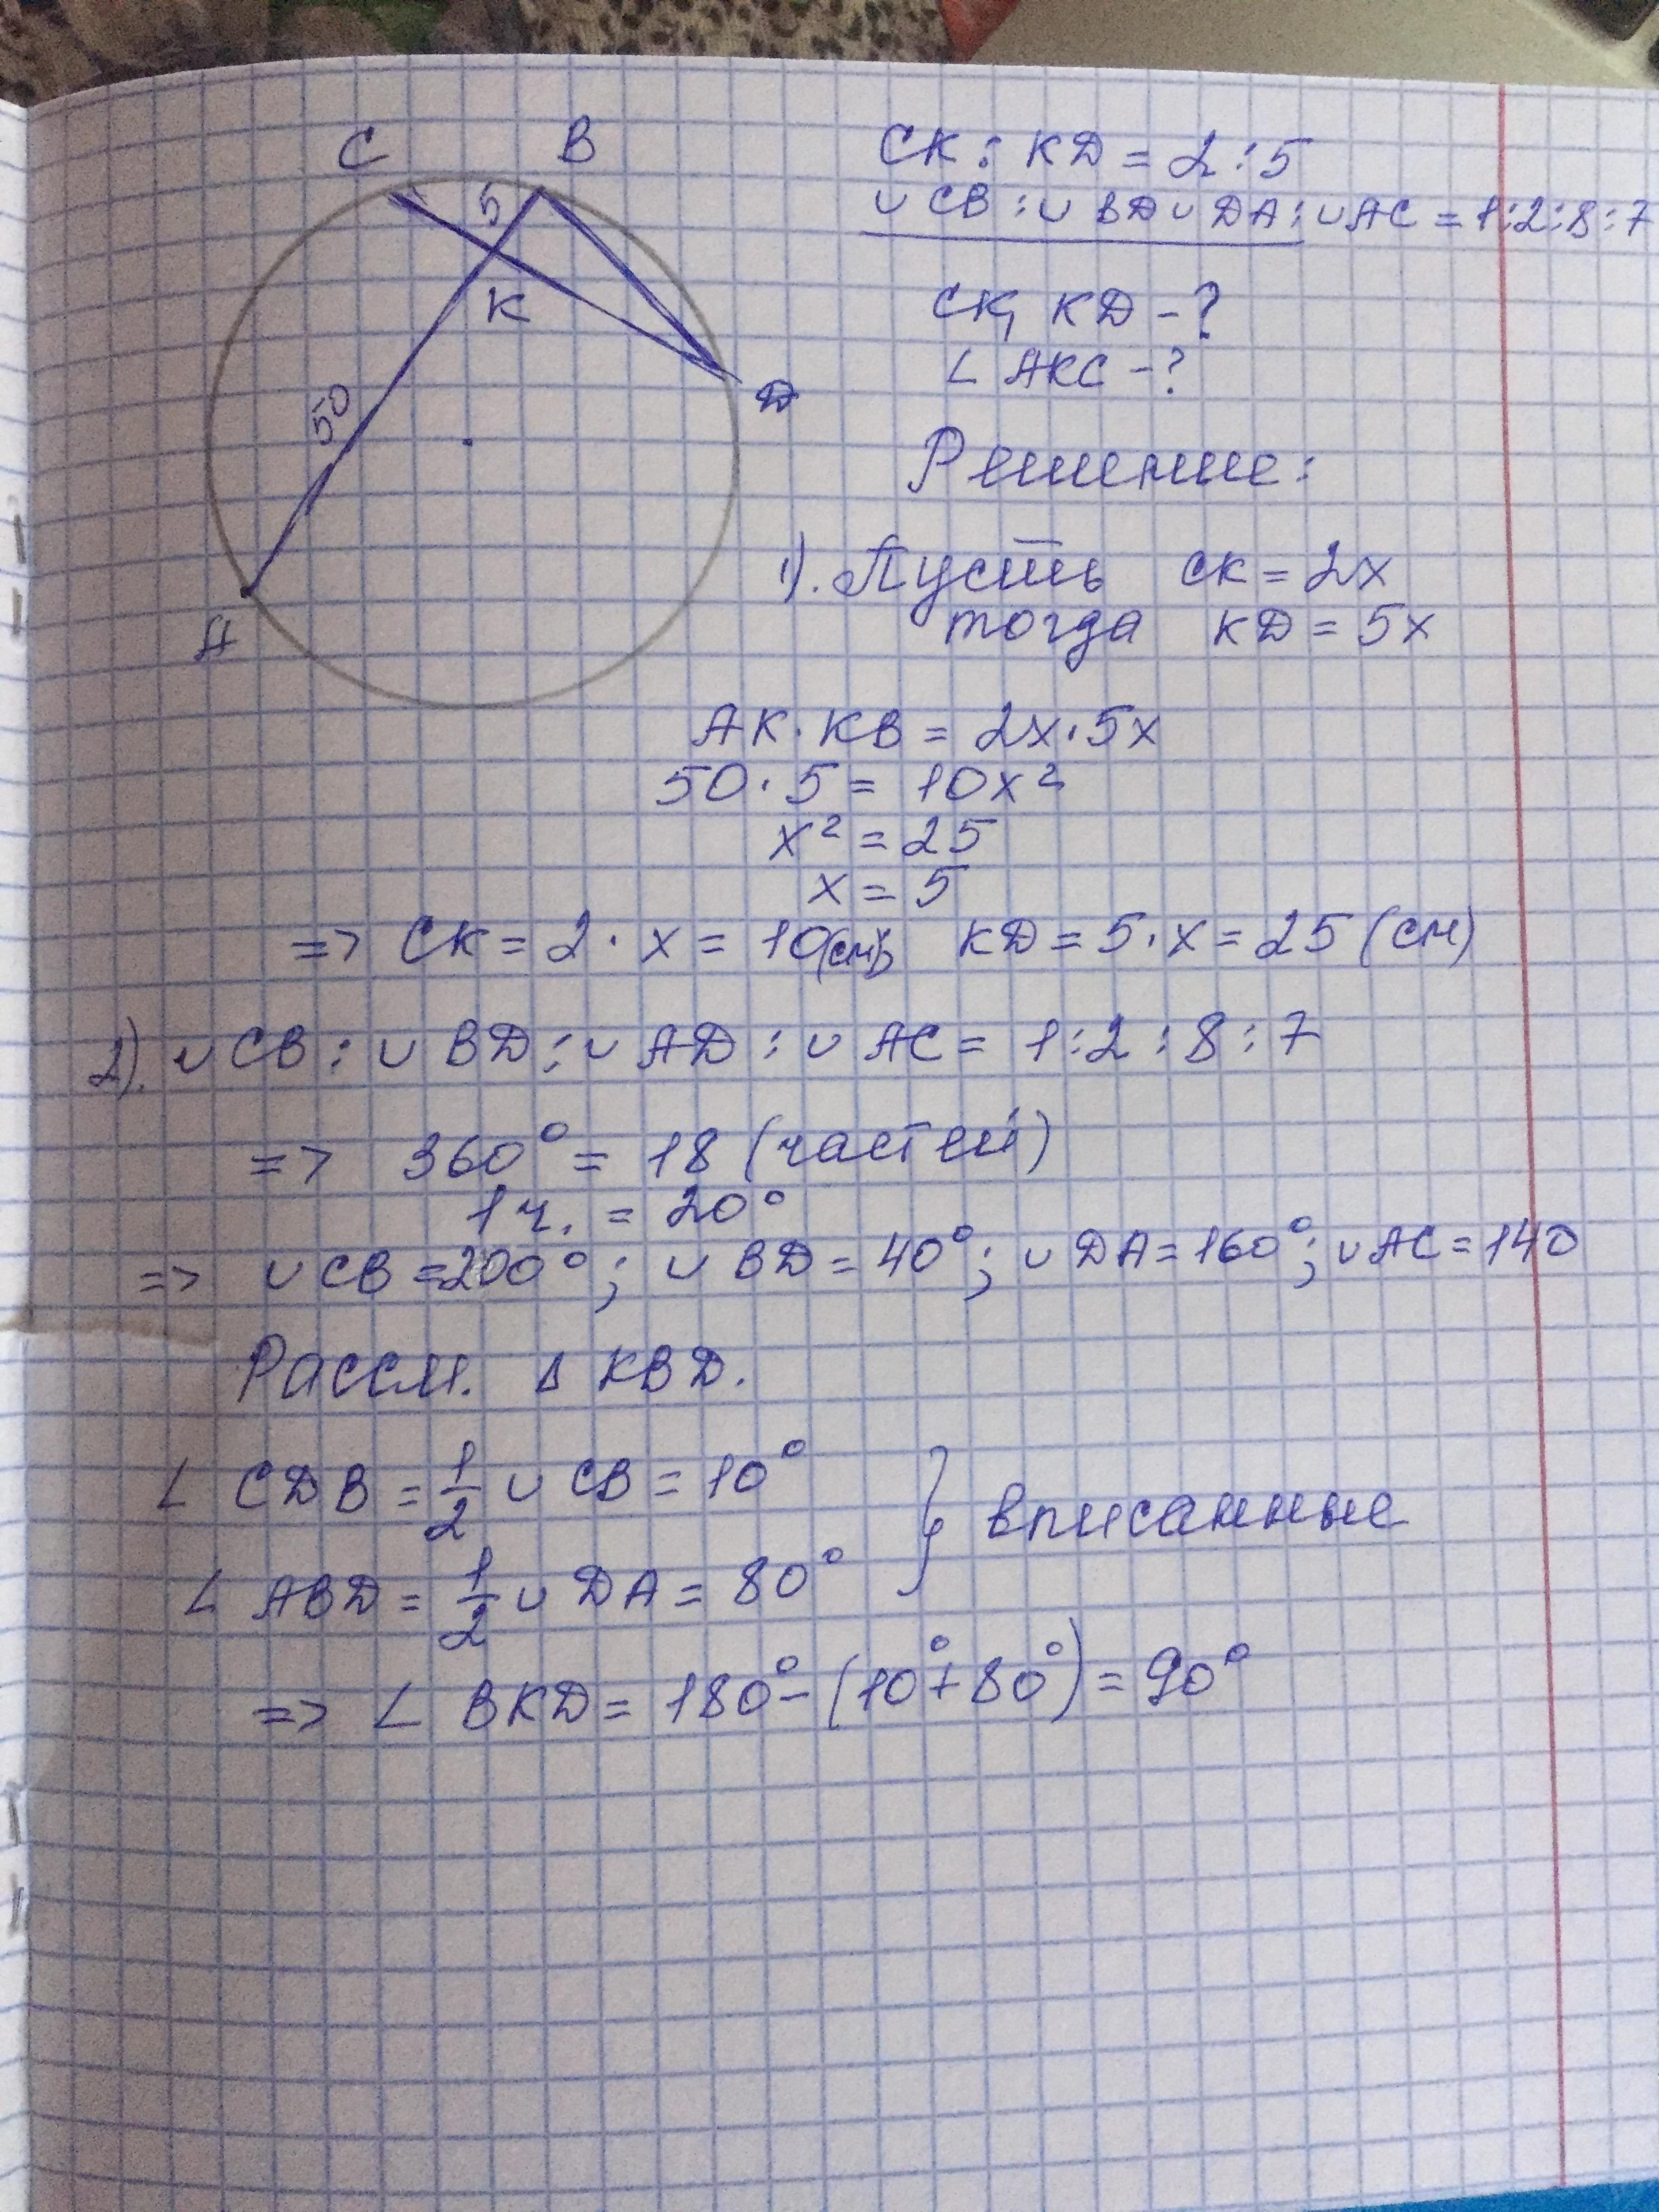 C B
5
K
50
D
A
CK : KD = 2 : 5
∪ CB : ∪ BD ∪ DA : ∪ AC = 1:2:8:7
CK, KD - ?
∠ AKC - ?
Решение:
1). Пусть CK = 2x
тогда KD = 5x
AK · KB = 2x · 5x
50 · 5 = 10x²
x² = 25
x = 5
=> CK = 2 · x = 10(см); KD = 5 · x = 25 (см)
2). ∪ CB : ∪ BD : ∪ AD : ∪ AC = 1 : 2 : 8 : 7
=> 360° = 18 (частей)
1 ч. = 20°
=> ∪ CB = 200° ; ∪ BD = 40° ; ∪ DA = 160° ; ∪ AC = 140
Рассм. Δ KBD.
∠ CDB = 1/2 ∪ CB = 10°
∠ ABD = 1/2 ∪ DA = 80° } вписанные
=> ∠ BKD = 180° - (10° + 80°) = 90°